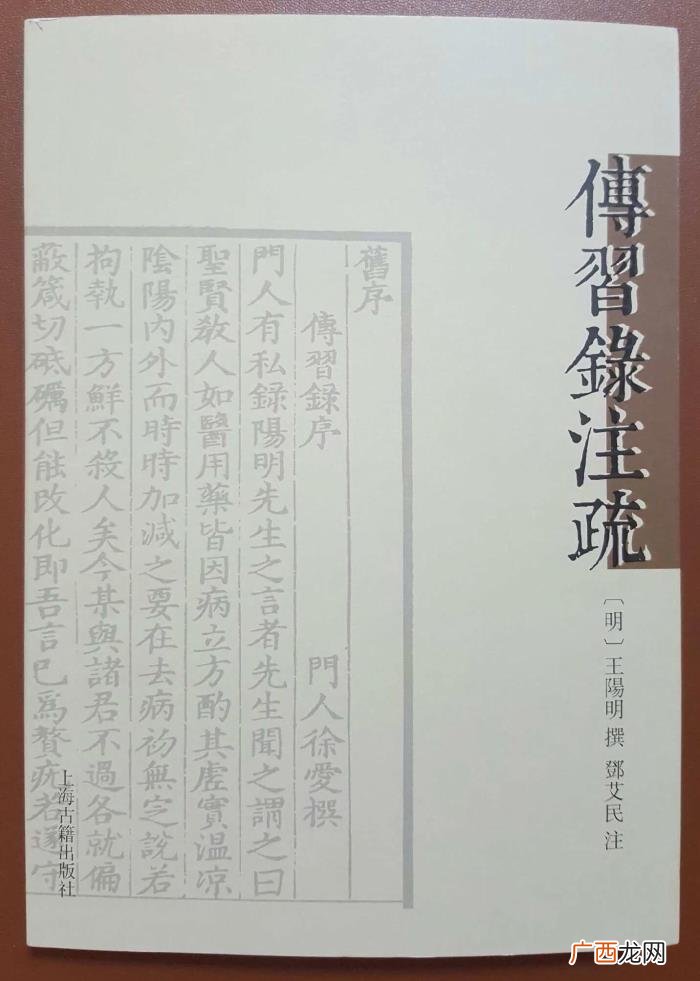 傳習錄注疏
〔明〕王陽明 撰 鄧艾民 注
舊序
傳習録序 門人徐愛撰
門人有私録陽明先生之言者先生聞之謂之曰
聖賢教人如醫用藥皆因病立方酌其虛實温凉
陰陽内外而時時加減之要在去病初無定說若
拘執一方鮮不殺人矣今某與諸君不過各就偏
蔽箴切砥礪但能改化即吾言已爲贅疣若遂守
上海古籍出版社
广西龙网